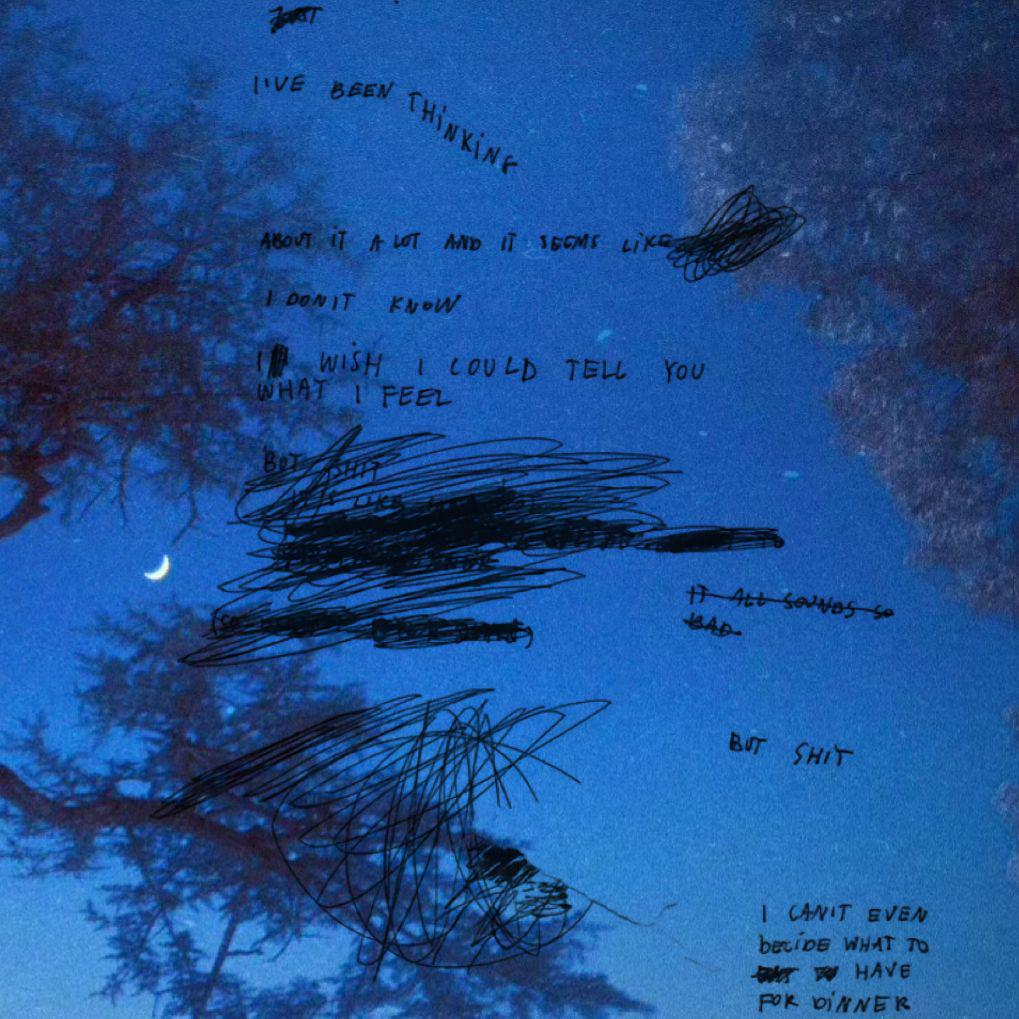 I'VE BEEN THINKING
ABOUT IT A LOT AND IT SEEMS LIKE
I DON'T KNOW
I WISH I COULD TELL YOU
WHAT I FEEL
BUT SHIT
IT'S LIKE
IT ALL SOUNDS SO
BAD
BUT SHIT
I CAN'T EVEN
DECIDE WHAT TO
HAVE
FOR DINNER